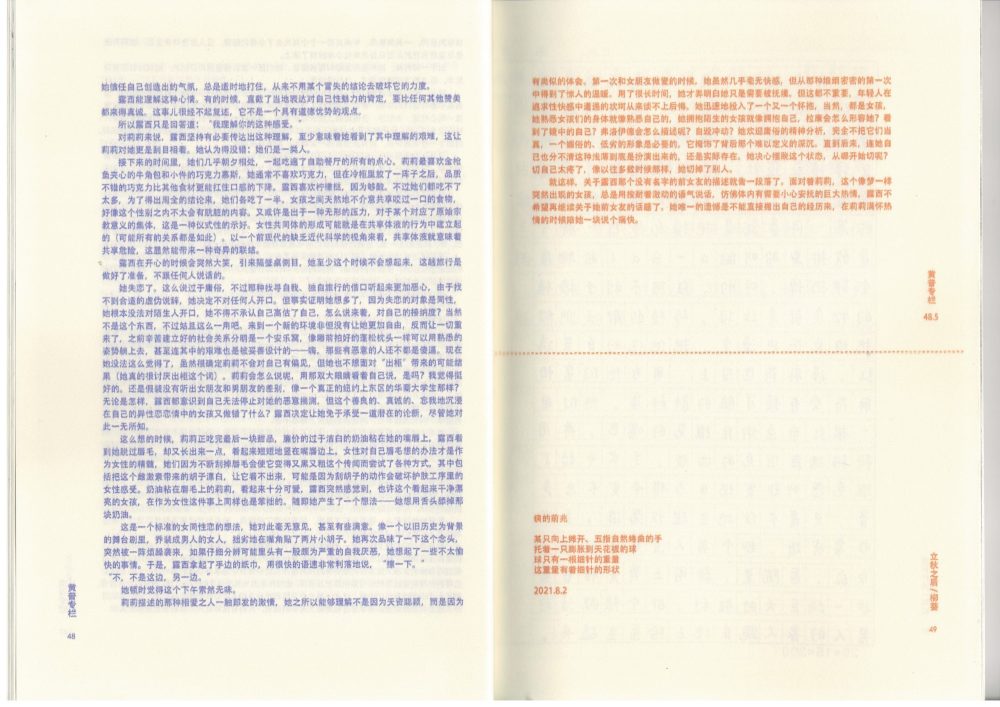 她信任自己创造出的气氛，总是适时地打住，从来不用某个冒失的结论去破坏它的力度。
露西能理解这种心情。有的时候，直截了当地表达对自己性魅力的肯定，要比任何其他赞美
都来得真诚。这事儿很经不起复述，它不是一个具有道德优势的观点。
所以露西只是回答道：“我理解你的这种感受。”
对莉莉来说，露西坚持有必要传达出这种理解，至少意味着她看到了其中理解的艰难，这让
莉莉对她更是刮目相看。她认为得没错：她们是一类人。
接下来的时间里，她们几乎朝夕相处，一起吃遍了自助餐厅的所有的点心。莉莉最喜欢金枪
鱼夹心的牛角包和小件的巧克力慕斯，她通常不喜欢巧克力，但在冷柜里放了一阵子之后，品质
不错的巧克力比其他食材更能扛住口感的下降。露西喜欢柠檬挞，因为够酸。不过她们都吃不了
太多，为了得出周全的结论来，她们各吃了一半。女孩之间天然地不介意共享咬过一口的食物，
好像这个性别之内不太会有肮脏的内容。又或许是出于一种无形的压力，对于某个对应了原始宗
教意义的集体，这是一种仪式性的示好。女性共同体的形成可能就是在共享体液的行为中建立起
的（可能所有的关系都是如此）。以一个前现代的缺乏近代科学的视角来看，共享体液就意味着
共享危险，这显然能带来一种奇异的联结。
露西在开心的时候会突然大笑，引来隔壁桌侧目，她至少这个时候不会想起来，这趟旅行是
做好了准备，不跟任何人说话的。
她失恋了。这么说过于庸俗，不过那种找寻自我、独自旅行的借口听起来更加恶心，由于找
不到合适的虚伪说辞，她决定不对任何人开口。但事实证明她想多了，因为失恋的对象是同性，
她根本没法对陌生人开口，她不得不承认自己高估了自己，怎么说来着，对自己的接纳度？当然
不是这个东西，不过姑且这么一用吧。来到一个新的环境非但没有让她更加自由，反而让一切重
来了，之前辛苦建立好的社会关系分明是一个安乐窝，像睡前拍好的蓬松枕头一样可以用熟悉的
姿势躺上去，甚至连其中的艰难也是被妥善设计的——嗨，那些有恶意的人还不都是傻逼。现在
她没法这么觉得了，虽然很确定莉莉不会对自己有偏见，但她也不想面对“出柜”带来的可能结
果（她真的很讨厌出柜这个词）。莉莉会怎么说呢，用那双大眼睛看着自己说，是吗？我觉得挺
好的。还是假装没有听出女朋友和男朋友的差别，像一个真正的纽约上东区的华裔大学生那样？
无论是怎样，露西都意识到自己无法停止对她的恶意揣测，但这个善良的、真诚的、忘我地沉浸
在自己的异性恋恋情中的女孩又做错了什么？露西决定让她免于承受一道潜在的论断，尽管她对
此一无所知。
这么想的时候，莉莉正吃完最后一块甜品，廉价的过于洁白的奶油粘在她的嘴唇上，露西看
到她脱过唇毛，却又长出来一点，看起来短短地竖在嘴唇边上。女性对自己唇毛想的办法才是作
为女性的精髓，她们因为不断刮掉唇毛会使它变得又黑又粗这个传闻而尝试了各种方式，其中包
括把这个雌激素带来的胡子漂白，让它看不出来，可能是因为刮胡子的动作会破坏护肤工序里的
女性感受。奶油粘在唇毛上的莉莉，看起来十分可爱，露西突然感觉到，也许这个看起来干净漂
亮的女孩，在作为女性这件事上同样也是笨拙的。随即她产生了一个想法——她想用舌头舔掉那
块奶油。
这是一个标准的女同性恋的想法，她对此毫无意见，甚至有些满意。像一个以旧历史为背景
的舞台剧里，乔装成男人的女人，拙劣地在嘴角贴了两片小胡子。她再次品味了一下这个念头，
突然被一阵烦躁袭来，如果仔细分辨可能里头有一股颇为严重的自我厌恶，她想起了一些不太愉
快的事情。于是，露西拿起了手边的纸巾，用很快的语速非常利落地说，“擦一下。”
“不，不是这边，另一边。”
她顿时觉得这个下午索然无味。
莉莉描述的那种相爱之人一触即发的激情，她之所以能够理解不是因为天资聪颖，而是因为
黄昏专栏
48
有类似的体会。第一次和女朋友做爱的时候，她虽然几乎毫无快感，但从那种细细密密的第一次
中得到了惊人的温暖。用了很长时间，她才弄明白她只是需要被抚摸，但这都不重要，年轻人在
追求性快感中遭遇的坎坷从来谈不上后悔。她迅速地投入了一个又一个怀抱，当然，都是女孩，
她熟悉女孩们的身体就像熟悉自己的，她拥抱陌生的女孩就像拥抱自己，拉康会怎么形容她？看
到了镜中的自己？弗洛伊德会怎么描述呢？自毁冲动？她欢迎庸俗的精神分析，完全不把它们当
真，一个媚俗的、低劣的形象是必要的，它掩饰了背后那个难以定义的深沉。直到后来，连她自
己也分不清这种浅薄到底是扮演出来的，还是实际存在，她决心摆脱这个状态，从哪开始切呢？
切自己太疼了，像以往多数时候那样，她切掉了别人。
就这样，关于露西那个没有名字的前女友的描述就告一段落了。面对着莉莉，这个像梦一样
突然出现的女孩，总是用按耐着激动的语气说话，仿佛体内有需要小心安抚的巨大热情，露西不
希望再继续关于她前女友的话题了。她唯一的遗憾是不能直接抛出自己的经历来，在莉莉满怀热
情的时候陪她一块说个痛快。
黄昏专栏
48.5
病的前兆
某只向上摊开、五指自然蜷曲的手
托着一只膨胀到天花板的球
球只有一根细针的重量
这重量有着细针的形状
2021.8.2
立秋之眉/柳蓁
49